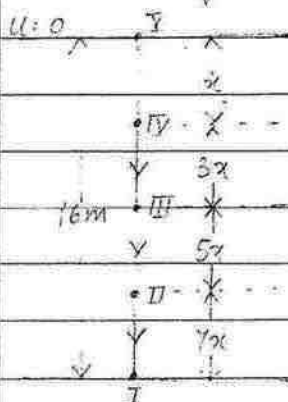 u: 0 V
x
IV
3x
16m III
5x
II
7x
I